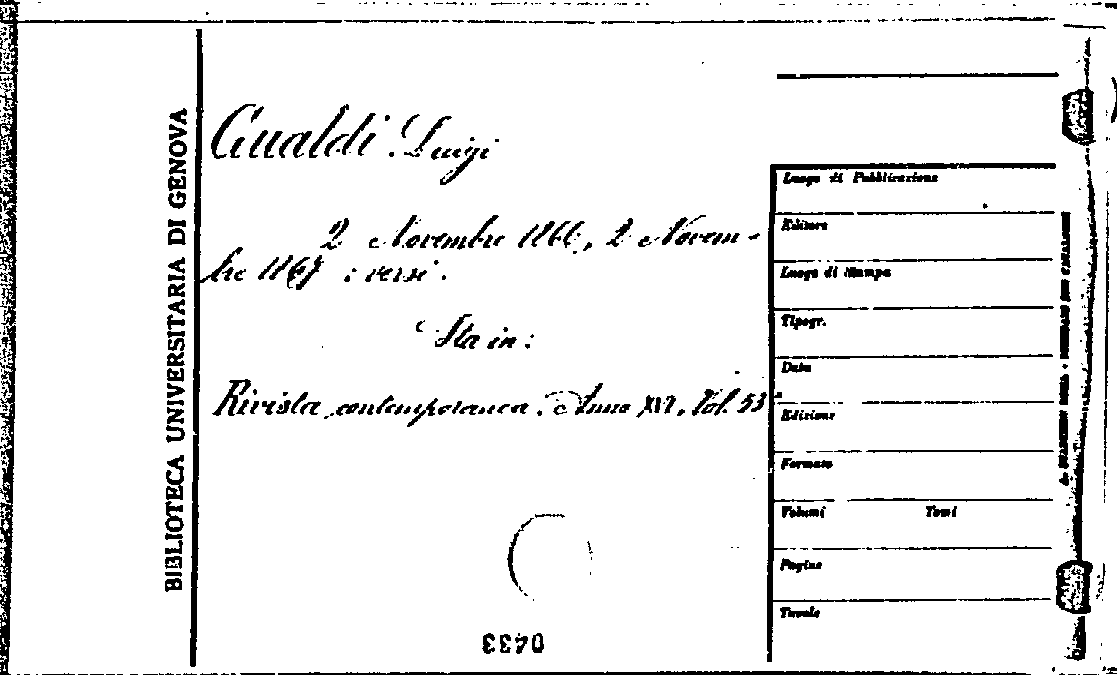 BIBLIOTECA UNIVERSITARIA DI GENOVA
Gualdi Luigi
2 Novembre 1866, 2 Novem-
bre 1867 : versi.
Sta in:
Rivista contemporanea. Anno XVI, Vol. 53°
Luogo di Pubblicazione
Editore
Luogo di Stampa
Tipogr.
Data
Edizione
Formato
Volumi Tomi
Pagine
Tavole
0433